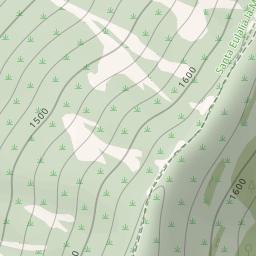 Santa Eulalia
1600
1500
1600